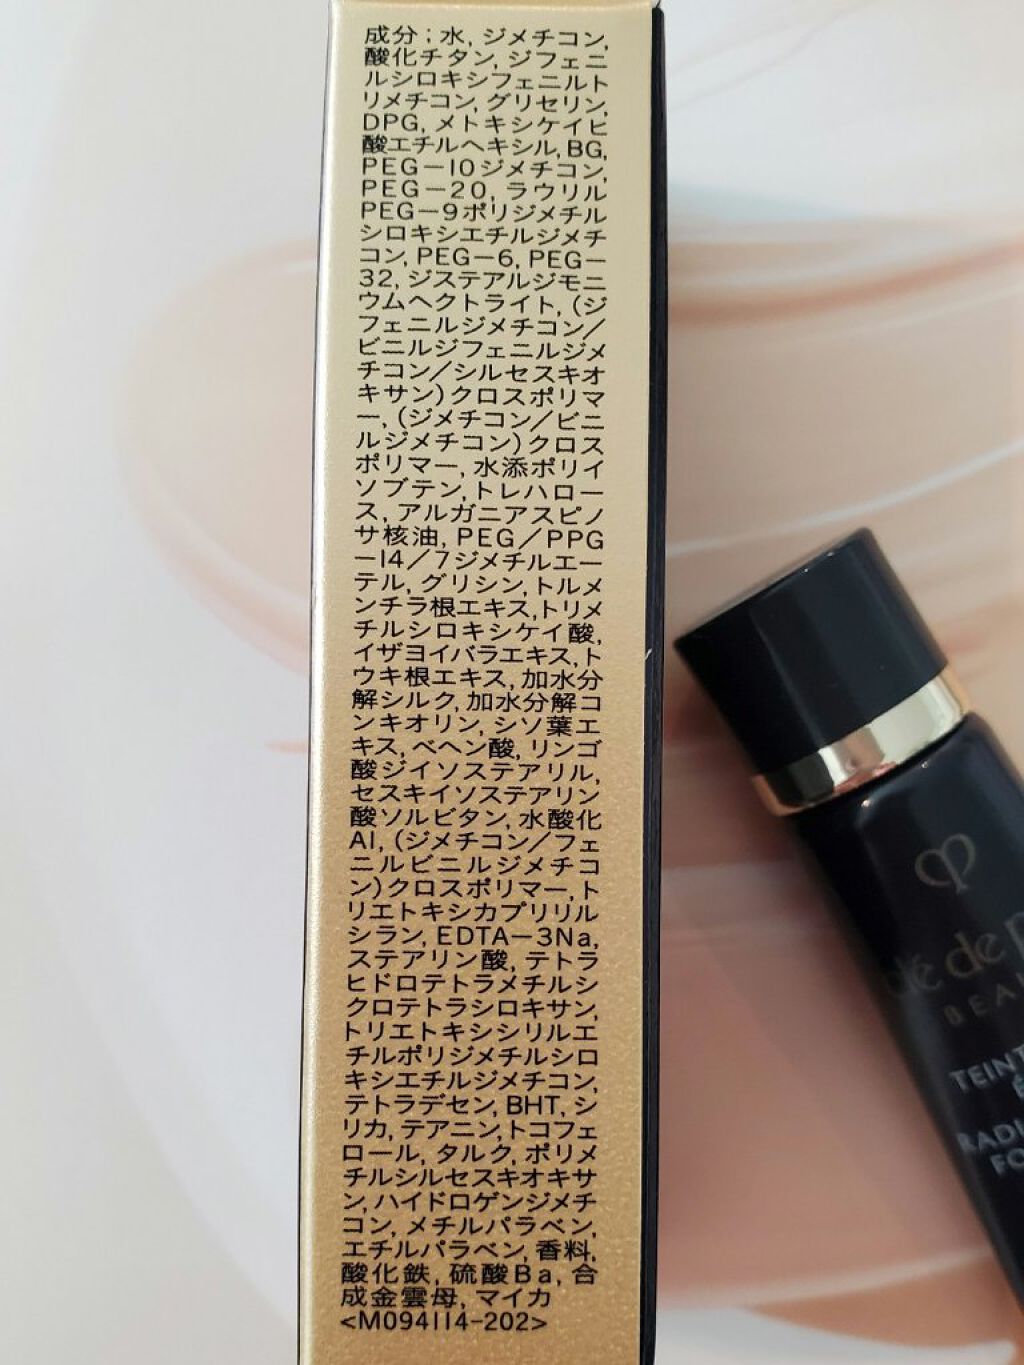 成分；水, ジメチコン,
酸化チタン, ジフェニ
ルシロキシフェニルト
リメチコン, グリセリン,
DPG, メトキシケイヒ
酸エチルヘキシル, BG,
PEG－10ジメチコン,
PEG－20, ラウリル
PEG－9ポリジメチル
シロキシエチルジメチ
コン, PEG－6, PEG－
32, ジステアルジモニ
ウムヘクトライト, (ジ
フェニルジメチコン／
ビニルジフェニルジメ
チコン／シルセスキオ
キサン)クロスポリマ
ー, (ジメチコン／ビニ
ルジメチコン)クロス
ポリマー, 水添ポリイ
ソブテン, トレハロー
ス, アルガニアスピノ
サ核油, PEG／PPG
－14／7ジメチルエー
テル, グリシン, トルメ
ンチラ根エキス,トリメ
チルシロキシケイ酸,
イザヨイバラエキス, ト
ウキ根エキス, 加水分
解シルク, 加水分解コ
ンキオリン, シソ葉エ
キス, ベヘン酸, リンゴ
酸ジイソステアリル,
セスキイソステアリン
酸ソルビタン, 水酸化
Al, (ジメチコン／フェ
ニルビニルジメチコ
ン)クロスポリマー, ト
リエトキシカプリリル
シラン, EDTA－3Na,
ステアリン酸, テトラ
ヒドロテトラメチルシ
クロテトラシロキサン,
トリエトキシシリルエ
チルポリジメチルシロ
キシエチルジメチコン,
テトラデセン, BHT, シ
リカ, テアニン,トコフェ
ロール, タルク, ポリメ
チルシルセスキオキサ
ン, ハイドロゲンジメチ
コン, メチルパラベン,
エチルパラベン, 香料,
酸化鉄, 硫酸Ba, 合
成金雲母, マイカ
<M094114-202>
de
BEAU
TEINT
É
RADI
FO